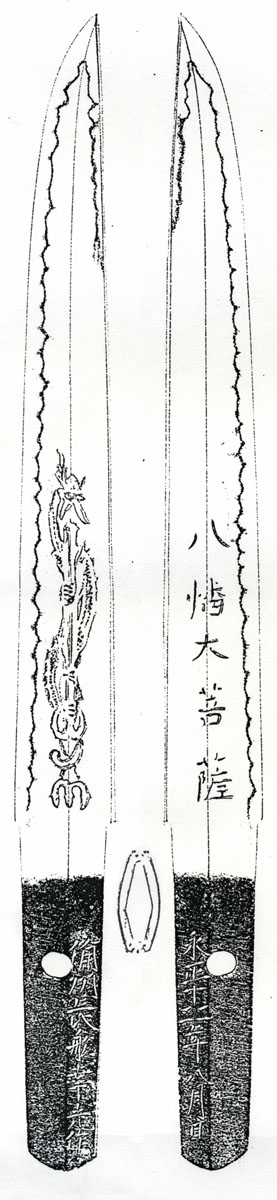 八幡大菩薩
永正十二年八月日
備州長船